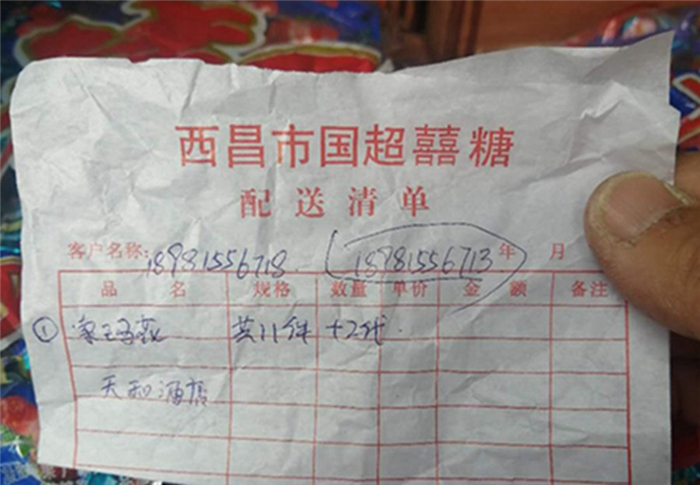 西昌市国超囍糖
配送清单
客户名称: 18981556718 (18981556713) 年 月
品名 规格 数量 单价 金额 备注
① 共11件 +2代
天和酒店